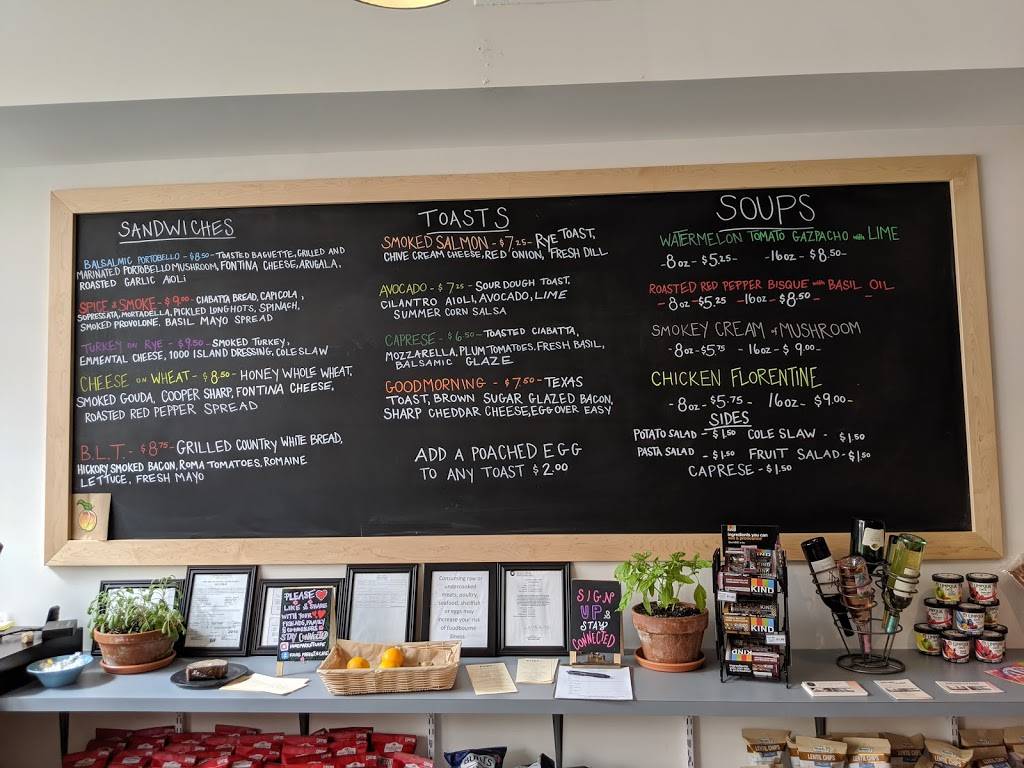 SANDWICHES
BALSALMIC PORTOBELLO - $8.50 - TOASTED BAGUETTE, GRILLED AND
MARINATED PORTOBELLO MUSHROOM, FONTINA CHEESE, ARUGALA,
ROASTED GARLIC AIOLI
SPICE & SMOKE - $9.00 - CIABATTA BREAD, CAPICOLA,
SOPRESSATA, MORTADELLA, PICKLED LONGHOTS, SPINACH,
SMOKED PROVOLONE, BASIL MAYO SPREAD
TURKEY ON RYE - $9.50 - SMOKED TURKEY,
EMMENTAL CHEESE, 1000 ISLAND DRESSING, COLESLAW
CHEESE ON WHEAT - $8.50 - HONEY WHOLE WHEAT,
SMOKED GOUDA, COOPER SHARP, FONTINA CHEESE,
ROASTED RED PEPPER SPREAD
B.L.T. - $8.75 - GRILLED COUNTRY WHITE BREAD,
HICKORY SMOKED BACON, ROMA TOMATOES, ROMAINE
LETTUCE, FRESH MAYO
TOASTS
SMOKED SALMON - $7.25 - RYE TOAST,
CHIVE CREAM CHEESE, RED ONION, FRESH DILL
AVOCADO - $7.25 - SOUR DOUGH TOAST,
CILANTRO AIOLI, AVOCADO, LIME
SUMMER CORN SALSA
CAPRESE - $6.50 - TOASTED CIABATTA,
MOZZARELLA, PLUM TOMATOES, FRESH BASIL,
BALSAMIC GLAZE
GOODMORNING - $7.50 - TEXAS
TOAST, BROWN SUGAR GLAZED BACON,
SHARP CHEDDAR CHEESE, EGG OVER EASY
ADD A POACHED EGG
TO ANY TOAST $2.00
SOUPS
WATERMELON TOMATO GAZPACHO with LIME
-8oz- $5.25- -16oz- $8.50-
ROASTED RED PEPPER BISQUE with BASIL OIL
-8oz-$5.25 -16oz- $8.50-
SMOKEY CREAM of MUSHROOM
-8oz-$5.75 -16oz- $9.00-
CHICKEN FLORENTINE
-8oz-$5.75- 16oz-$9.00-
SIDES
POTATO SALAD - $1.50 COLE SLAW - $1.50
PASTA SALAD - $1.50 FRUIT SALAD-$1.50
CAPRESE - $1.50
PLEASE
LIKE & SHARE
WITH YOUR
FRIENDS, FAMILY
STAY CONNECTED
Consuming raw or
undercooked
meats, poultry,
seafood, shellfish
or eggs may
increase your risk
of foodbourne
illness.
SIGN
UP &
STAY
CONNECTED
ingredients you can
KIND
KIND
KIND
LENTIL CHIPS
LENTIL CHIPS
LENTIL CHIPS